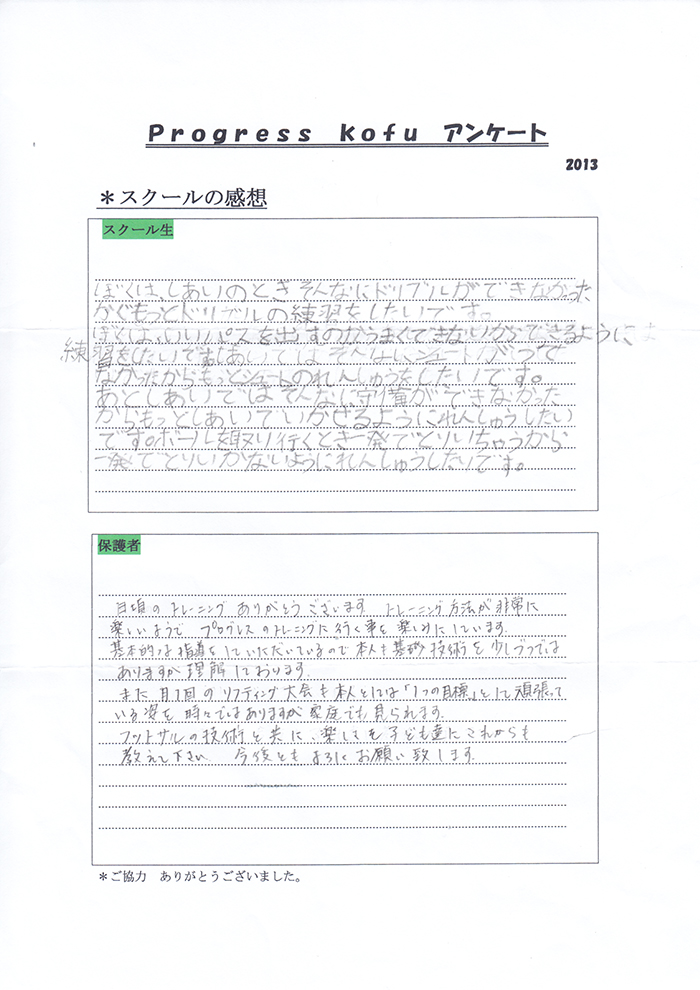 Progress kofu アンケート
2013
＊スクールの感想
スクール生
ぼくは、しあいのときそんなにドリブルができなかった
からもっとドリブルの練習をしたいです。
ぼくは、いいパスを出すのがうまくできないからできるように
練習をしたいです。しあいではそんなにシュートがうて
なかったからもっとシュートのれんしゅうをしたいです。
あとしあいではそんなに守備ができなかった
からもっとしあいでいかせるようにれんしゅうしたい
です。ボールを取り行くとき一発でとりいちゃうから
一発でとりいかないようにれんしゅうしたいです。
保護者
日頃のトレーニングありがとうございます。トレーニング方法が非常に
楽しいようで プログレスのトレーニングに行く事を楽しみにしています。
基本的な指導をしていただいているので本人も基礎技術を少しづつでは
ありますが理解しております。
また月1回のリフティング大会も本人とには「1つの目標」として頑張って
いる姿を時々ではありますが家庭でも見られます。
フットサルの技術と共に、楽しさを子ども達にこれからも
教えて下さい。今後ともよろしくお願い致します。
＊ご協力 ありがとうございました。